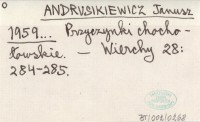 ANDRUSIKIEWICZ Janusz
1959... Przyczynki chocho-
łowskie. — Wierchy 28:
284-285.